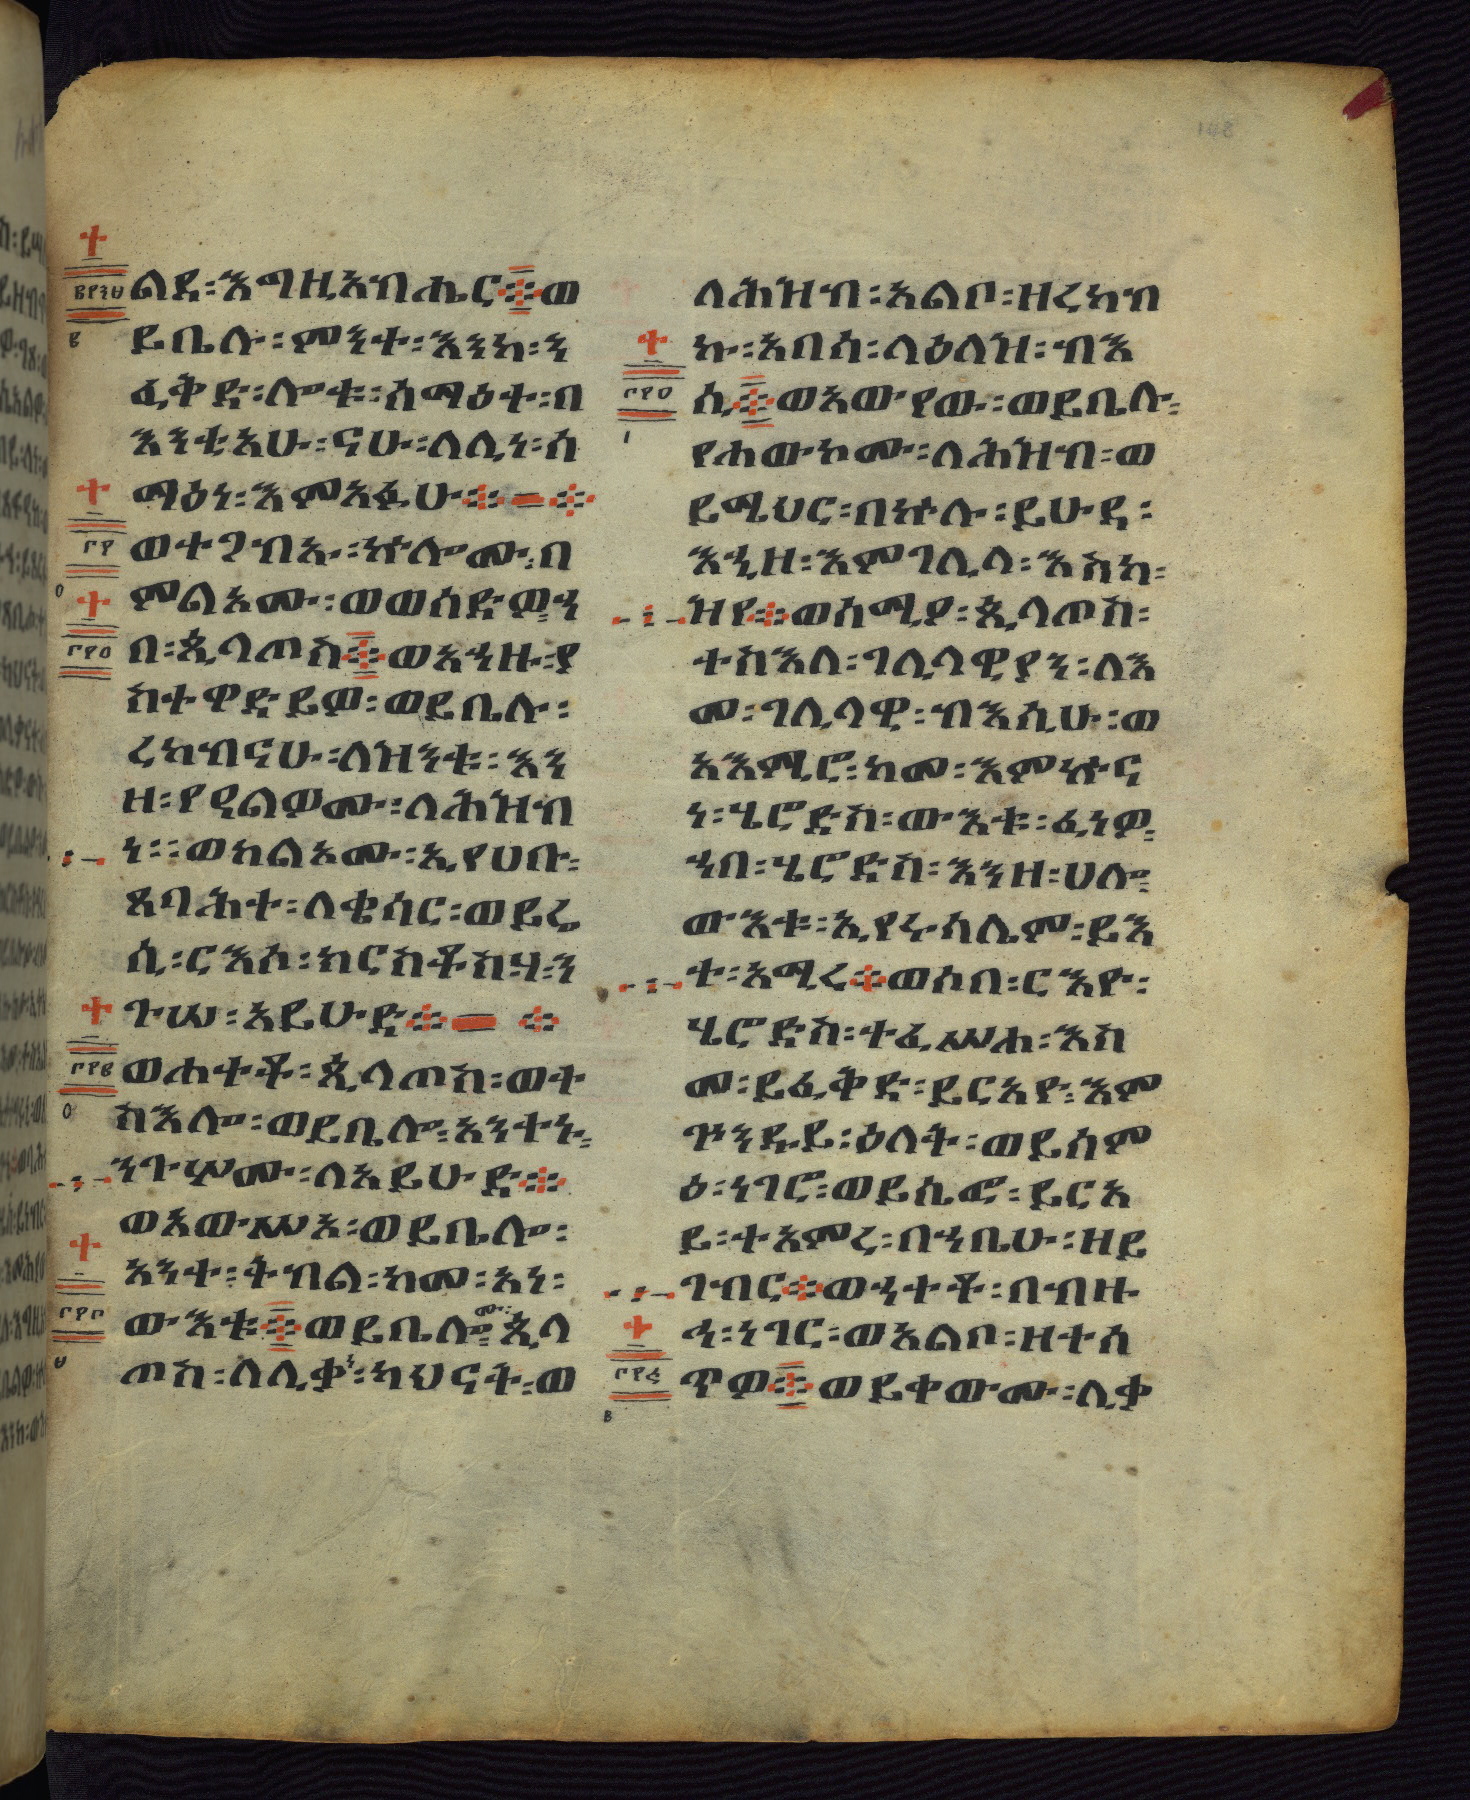 ልደ፡እግዚአብሔር፨ወ
ይቤሉ፡ምንተ፡እንከ፡ን
ፈቅድ፡ሎቱ፡ስማዕተ፡በ
እንቲአሁ፡ናሁ፡ለሊነ፡ሰ
ማዕነ፡እምአፉሁ፨—፨
ወተንብኡ፡ኵሎሙ፡በ
ምልአሙ፡ወወሰድዎ፡ኀ
በ፡ጲላጦስ፨ወአኀዙ፡ያ
ስተዋድይዎ፡ወይቤሉ፡
ረከብናሁ፡ለዝንቱ፡እን
ዘ፡የዔልዎሙ፡ለሕዝብ
ነ፡፡ወከልአሙ፡ኢየሀቡ፡
ጸባሕተ፡ለቄሳር፡ወይሬ
ሲ፡ርእሶ፡ክርስቶስሃ፡ን
ጉሠ፡አይሁድ፨— ፨
ወሐተቶ፡ጲላጦስ፡ወተ
ስእሎ፡ወይቤሎ፡አንተኑ፡
ንጉሦሙ፡ለአይሁድ፨
ወአውሥአ፡ወይቤሎ፡
አንተ፡ትብል፡ከመ፡አነ፡
ውእቱ፨ወይቤሎሙ፡ጲላ
ጦስ፡ለሊቃነ፡ካህናት፡ወ
ለሕዝብ፡አልቦ፡ዘረከብ
ኩ፡አበሰ፡ላዕለዝ፡ብእ
ሲ፨ወአውየው፡ወይቤሉ፡
የሐውኮሙ፡ለሕዝብ፡ወ
ይሜህር፡በኵሉ፡ይሁዳ፡
እኂዘ፡እምገሊላ፡እስከ፡
ዝየ፨ወሰሚዖ፡ጲላጦስ፡
ተስእለ፡ገሊላዊያን፡ለእ
መ፡ገሊላዊ፡ብእሲሁ፡ወ
አእሚሮ፡ከመ፡እምኵና
ነ፡ሄሮድስ፡ውእቱ፡ፈነዎ፡
ኀበ፡ሄሮድስ፡እንዘ፡ሀሎ፡
ውእቱ፡ኢየሩሳሌም፡ይእ
ተ፡አሚረ፨ወሶበ፡ርእዮ፡
ሄሮድስ፡ተፈሥሐ፡እስ
መ፡ይፈቅድ፡ይርአዮ፡እም
ጕንዱይ፡ዕለት፡ወይሰም
ዕ፡ነገሮ፡ወይሴፎ፡ይርአ
ይ፡ተአምረ፡በኀቤሁ፡ዘይ
ገብር፨ወኀተቶ፡በብዙ
ኅ፡ነገር፡ወአልቦ፡ዘተሰ
ጥዎ፨ወይቀውሙ፡ሊቃ